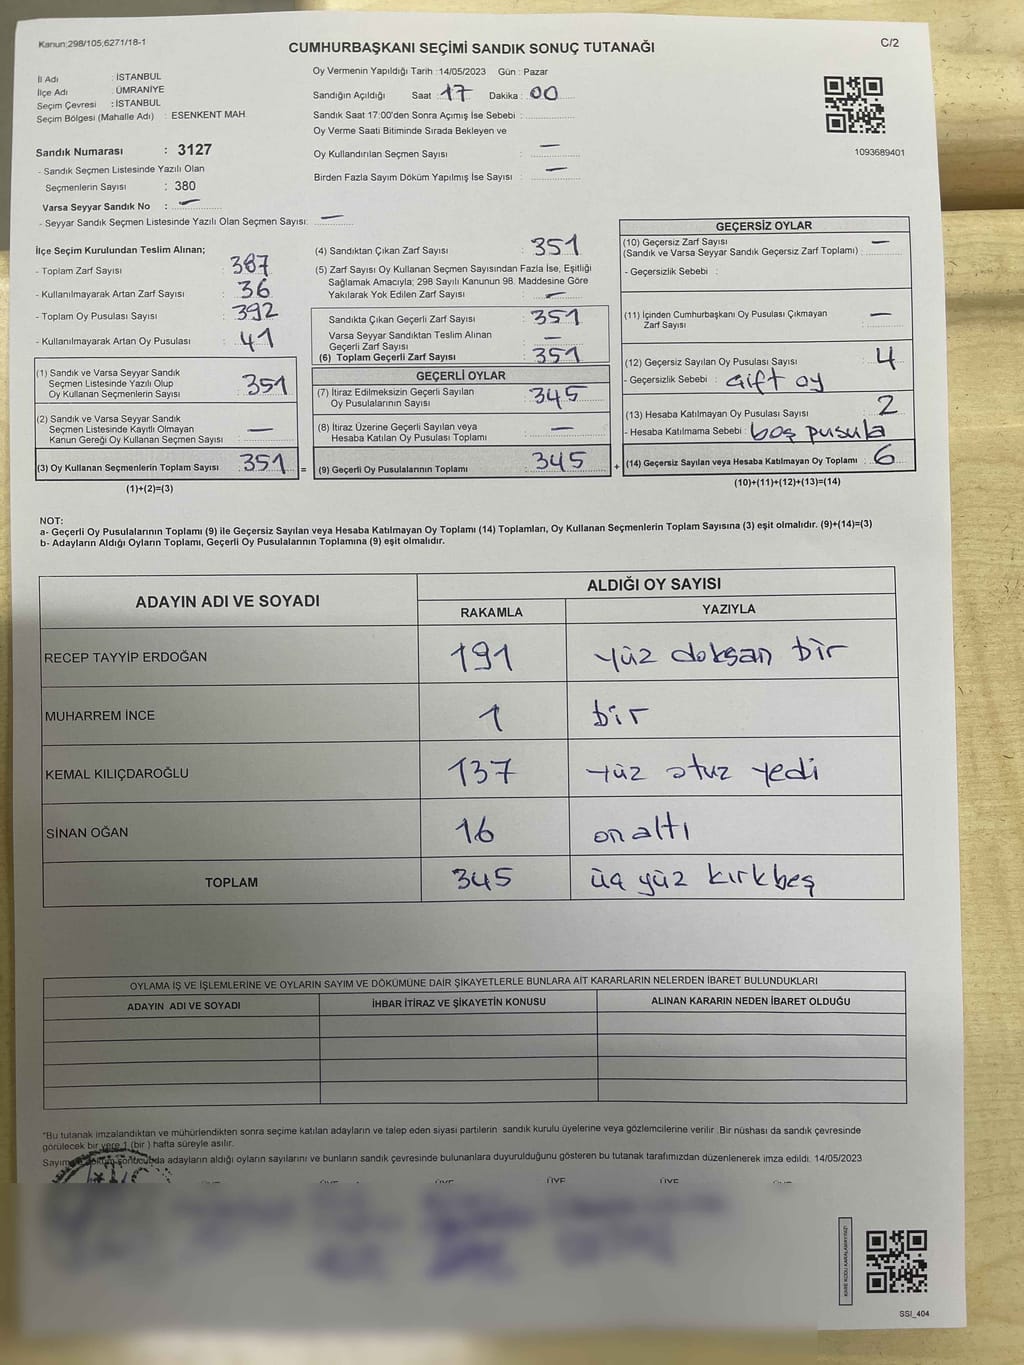 Kanun:298/105;6271/18-1
C/2
CUMHURBAŞKANI SEÇİMİ SANDIK SONUÇ TUTANAĞI
İl Adı : İSTANBUL
İlçe Adı : ÜMRANİYE
Seçim Çevresi : İSTANBUL
Seçim Bölgesi (Mahalle Adı) : ESENKENT MAH
Sandık Numarası : 3127
- Sandık Seçmen Listesinde Yazılı Olan
Seçmenlerin Sayısı : 380
Varsa Seyyar Sandık No : —
- Seyyar Sandık Seçmen Listesinde Yazılı Olan Seçmen Sayısı: —
Oy Vermenin Yapıldığı Tarih :14/05/2023 Gün : Pazar
Sandığın Açıldığı Saat : 17 Dakika : 00
Sandık Saat 17:00'den Sonra Açımış İse Sebebi :
Oy Verme Saati Bitiminde Sırada Bekleyen ve
Oy Kullandırılan Seçmen Sayısı : —
Birden Fazla Sayım Döküm Yapılmış İse Sayısı : —
1093689401
İlçe Seçim Kurulundan Teslim Alınan;
- Toplam Zarf Sayısı : 387
- Kullanılmayarak Artan Zarf Sayısı : 36
- Toplam Oy Pusulası Sayısı : 392
- Kullanılmayarak Artan Oy Pusulası : 41
(1) Sandık ve Varsa Seyyar Sandık
Seçmen Listesinde Yazılı Olup
Oy Kullanan Seçmenlerin Sayısı : 351
(2) Sandık ve Varsa Seyyar Sandık
Seçmen Listesinde Kayıtlı Olmayan
Kanun Gereği Oy Kullanan Seçmen Sayısı : —
(3) Oy Kullanan Seçmenlerin Toplam Sayısı : 351
=
(1)+(2)=(3)
(4) Sandıktan Çıkan Zarf Sayısı : 351
(5) Zarf Sayısı Oy Kullanan Seçmen Sayısından Fazla İse, Eşitliği
Sağlamak Amacıyla; 298 Sayılı Kanunun 98. Maddesine Göre
Yakılarak Yok Edilen Zarf Sayısı : —
Sandıkta Çıkan Geçerli Zarf Sayısı : 351
Varsa Seyyar Sandıktan Teslim Alınan
Geçerli Zarf Sayısı : —
(6) Toplam Geçerli Zarf Sayısı : 351
GEÇERLİ OYLAR
(7) İtiraz Edilmeksizin Geçerli Sayılan
Oy Pusulalarının Sayısı : 345
(8) İtiraz Üzerine Geçerli Sayılan veya
Hesaba Katılan Oy Pusulası Toplamı : —
(9) Geçerli Oy Pusulalarının Toplamı : 345
+
GEÇERSİZ OYLAR
(10) Geçersiz Zarf Sayısı
(Sandık ve Varsa Seyyar Sandık Geçersiz Zarf Toplamı) : —
- Geçersizlik Sebebi :
(11) İçinden Cumhurbaşkanı Oy Pusulası Çıkmayan
Zarf Sayısı : —
(12) Geçersiz Sayılan Oy Pusulası Sayısı : 4
- Geçersizlik Sebebi : Çift oy
(13) Hesaba Katılmayan Oy Pusulası Sayısı : 2
- Hesaba Katılmama Sebebi : boş pusula
(14) Geçersiz Sayılan veya Hesaba Katılmayan Oy Toplamı : 6
(10)+(11)+(12)+(13)=(14)
NOT:
a- Geçerli Oy Pusulalarının Toplamı (9) ile Geçersiz Sayılan veya Hesaba Katılmayan Oy Toplamı (14) Toplamları, Oy Kullanan Seçmenlerin Toplam Sayısına (3) eşit olmalıdır. (9)+(14)=(3)
b- Adayların Aldığı Oyların Toplamı, Geçerli Oy Pusulalarının Toplamına (9) eşit olmalıdır.
ADAYIN ADI VE SOYADI
ALDIĞI OY SAYISI
RAKAMLA YAZIYLA
RECEP TAYYİP ERDOĞAN 191 yüz doksan bir
MUHARREM İNCE 1 bir
KEMAL KILIÇDAROĞLU 137 yüz otuz yedi
SİNAN OĞAN 16 on altı
TOPLAM 345 üç yüz kırkbeş
OYLAMA İŞ VE İŞLEMLERİNE VE OYLARIN SAYIM VE DÖKÜMÜNE DAİR ŞİKAYETLERLE BUNLARA AİT KARARLARIN NELERDEN İBARET BULUNDUKLARI
ADAYIN ADI VE SOYADI İHBAR İTİRAZ VE ŞİKAYETİN KONUSU ALINAN KARARIN NEDEN İBARET OLDUĞU
"Bu tutanak imzalandıktan ve mühürlendikten sonra seçime katılan adayların ve talep eden siyasi partilerin sandık kurulu üyelerine veya gözlemcilerine verilir .Bir nüshası da sandık çevresinde
görülecek bir yere 1 (bir ) hafta süreyle asılır.
Sayım döküm sonucunda adayların aldığı oyların sayılarını ve bunların sandık çevresinde bulunanlara duyurulduğunu gösteren bu tutanak tarafımızdan düzenlenerek imza edildi. 14/05/2023
ÜYE ÜYE
KARE KODU KARALAMAYINIZ!
SSI_404